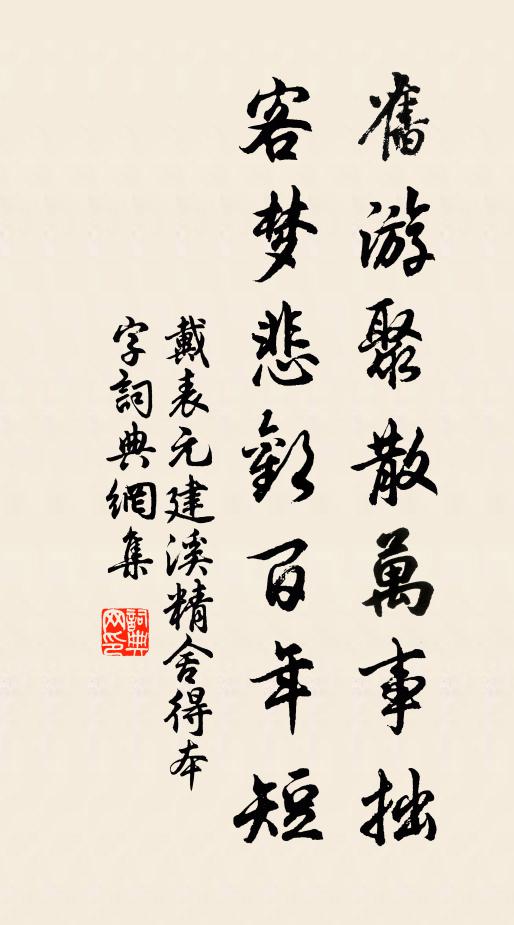 舊游聚散萬事拙
客梦悲歡百年短
戴表元建溪精舍得本
字詞典網集
詞典网印